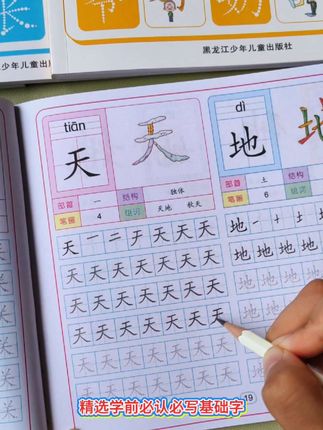 黑龙江少年儿童出版社
少年儿童出版社
tiān
天
部首 一 结构 独体
笔画 4 组词 天地 秋天
天 一 二 于 天 天 天
天 天 天 天 天 天 天
天 天 天 天 天 天 天
天 天 天 天 天 天 天
dì
地
部首 土 结构
笔画 6 组词
地 一 十 土
地 地 地 地
地 地 地
19
精选学前必认必写基础字